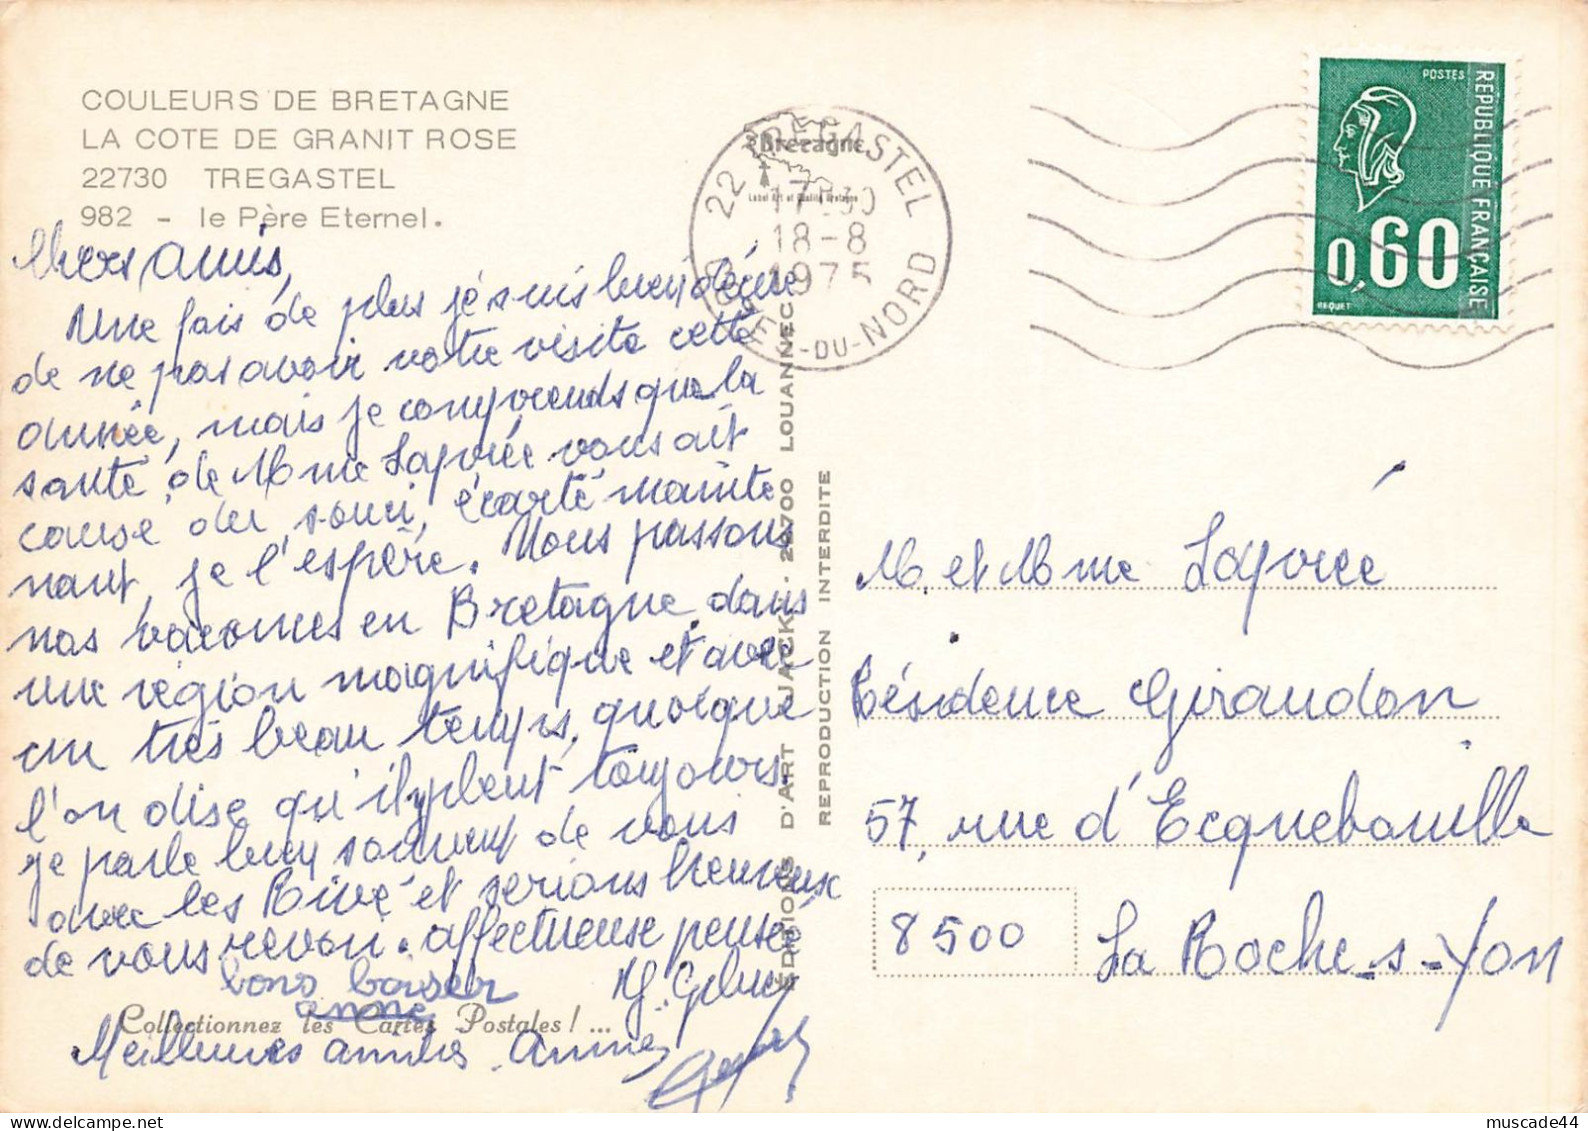 COULEURS DE BRETAGNE
LA COTE DE GRANIT ROSE
22730 TREGASTEL
982 - le Père Eternel.
Chers amis,
Une fois de plus je suis bien déçue
de ne pas avoir votre visite cette
année, mais je comprends que la
santé de Mme Layrée vous ait
causé du souci, écarté mainte
nant, je l'espère. Nous passons
nos vacances en Bretagne dans
une région magnifique et avec
un très beau temps, quoique
l'on dise qu'il y pleut toujours.
je parle bien souvent de vous
avec les Rivé et serions heureux
de vous revoir. affectueuse pensée
bons baiser
anne
Meilleures amitiés Annie
Collectionnez les Cartes Postales ! ...
Bretagne
Label Art et Qualité Bretagne
22 TREGASTEL
17-30
18-8
1975
-DU-NORD
ÉDITIONS D'ART JACK - 22700 LOUANNEC
REPRODUCTION INTERDITE
POSTES
RÉPUBLIQUE FRANÇAISE
0,60
BEQUET
M. et Mme Layrée
Résidence Giraudon
57, rue d'Ecquebouille
8500 La Roche-s-Yon
muscade44